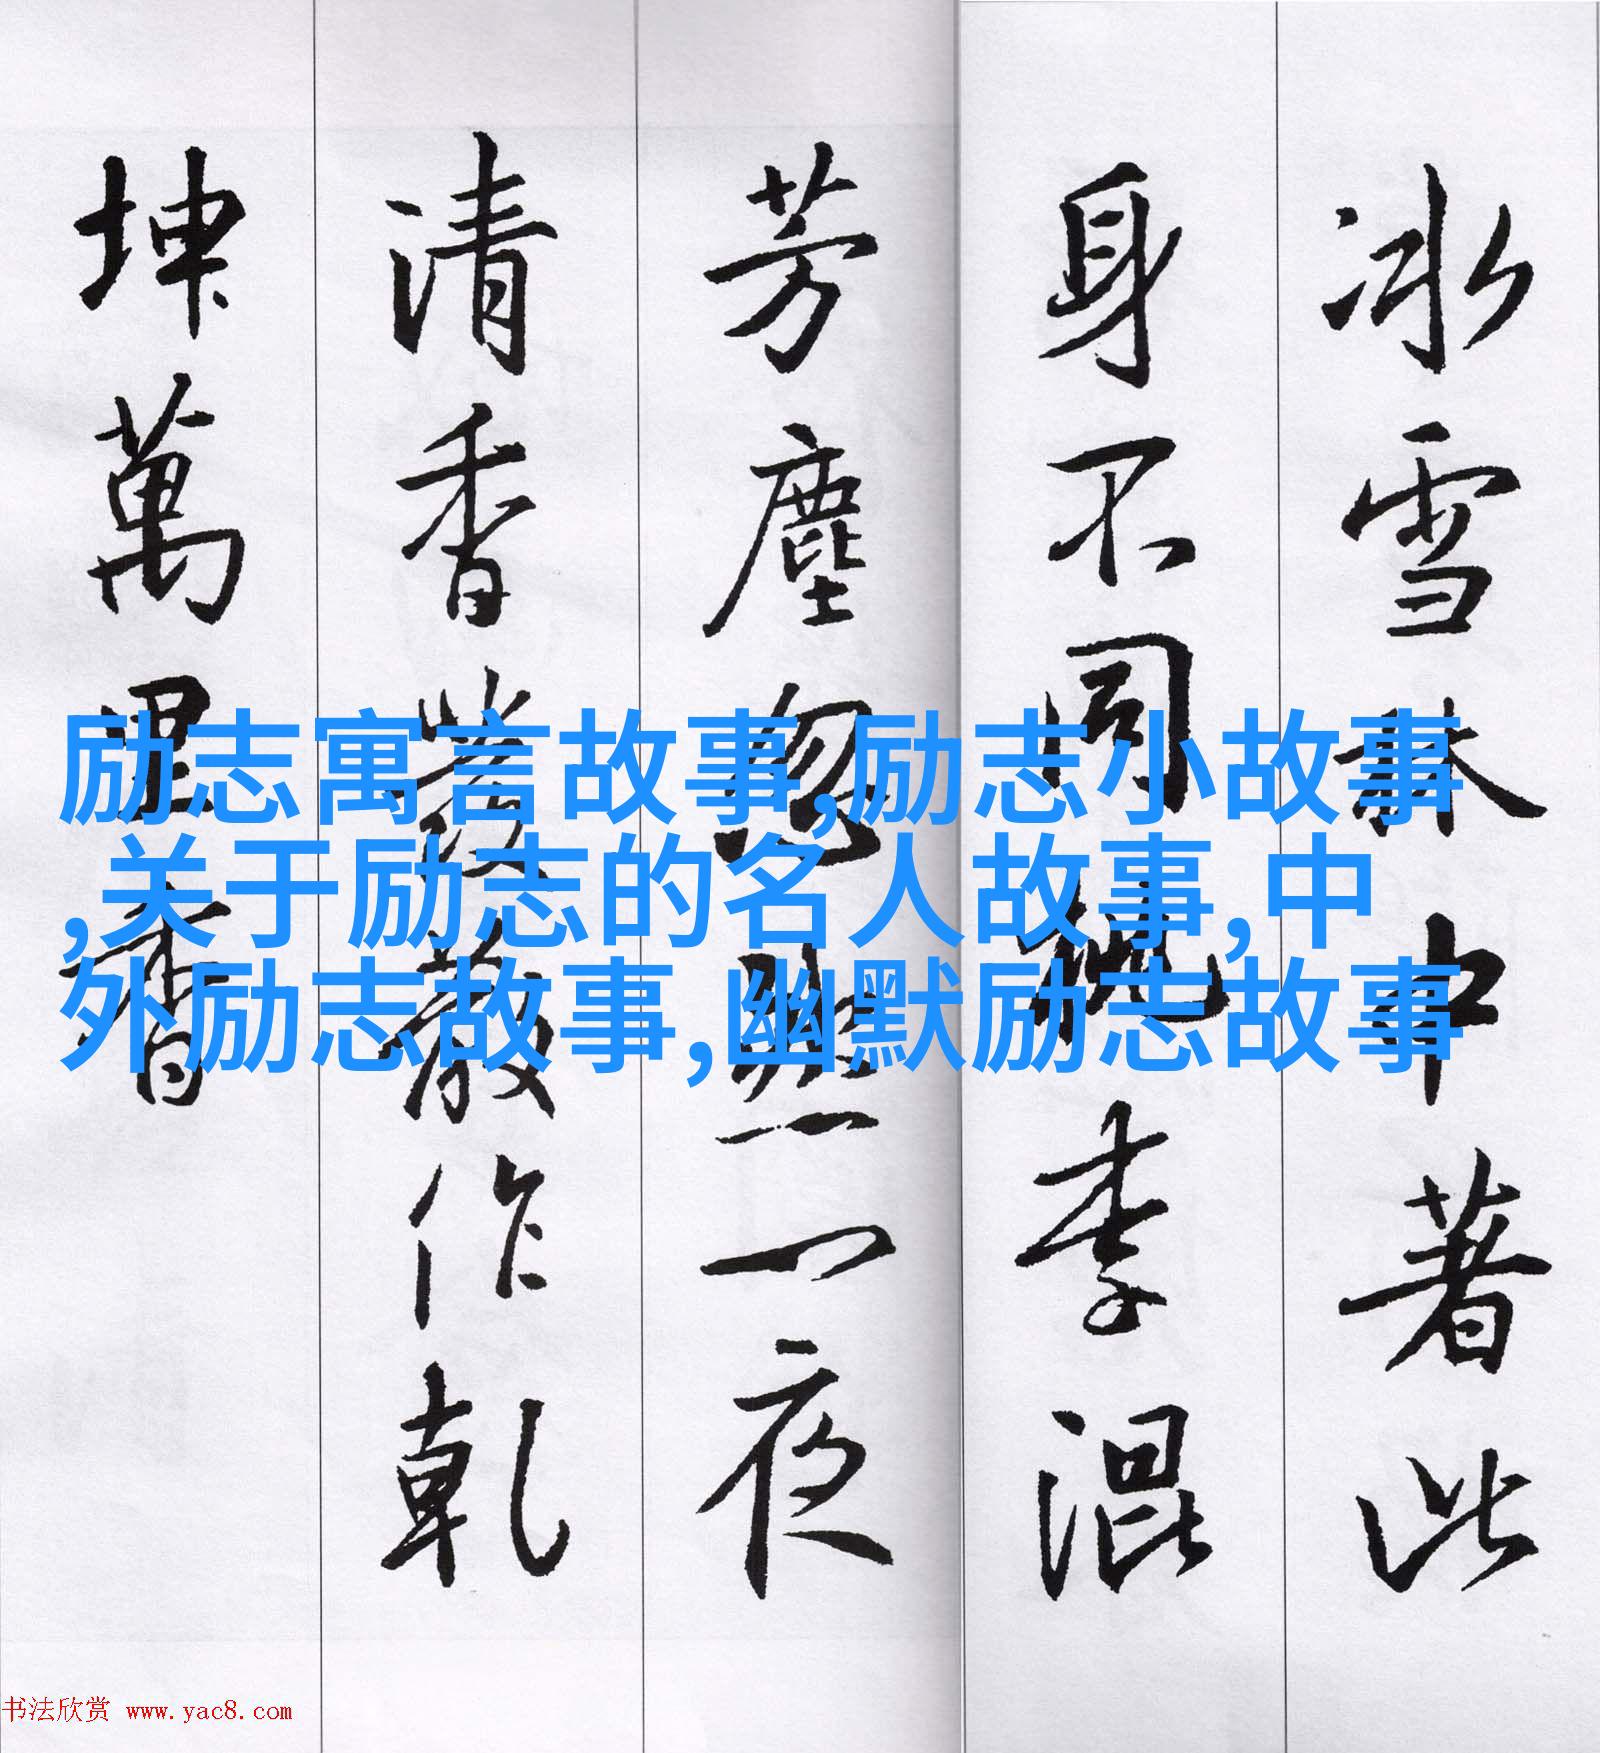 冰雪林中著此
身不同桃李混
芳塵忽然一夜
清香發散作乾
坤萬里香
励志寓言故事,励志小故事
,关于励志的名人故事,中
外励志故事,幽默励志故事
书法欣赏 www.yac8.com